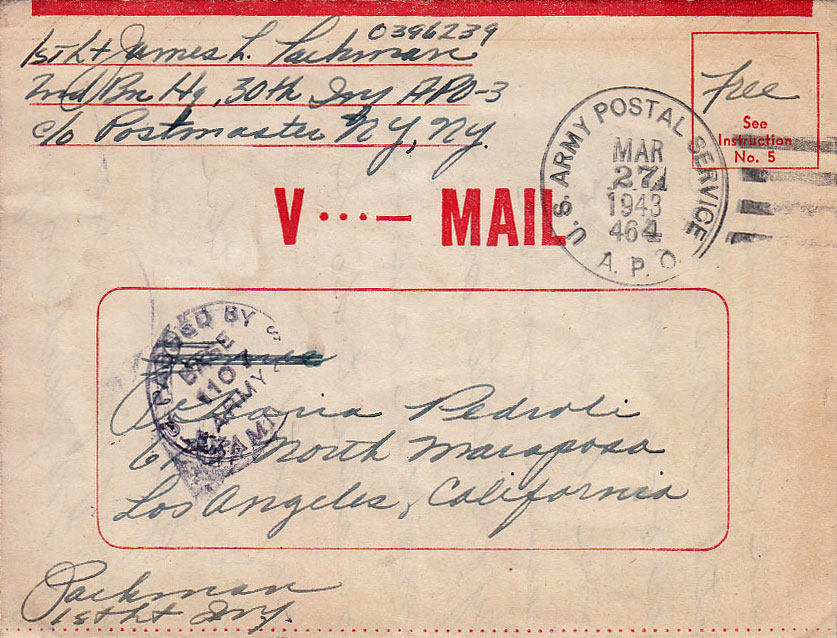 0396239
1st Lt James L. Packman
2nd Bn Hq, 30th Inf APO-3
c/o Postmaster NY, NY.
Free
See
Instruction
No. 5
U.S. ARMY POSTAL SERVICE
MAR
27
1943
464
A. P. O.
V ···— MAIL
PASSED BY
BASE
1107
ARMY
EXAMI
Pedroli
North Mariposa
Los Angeles, California
Packman
1st Lt Inf.